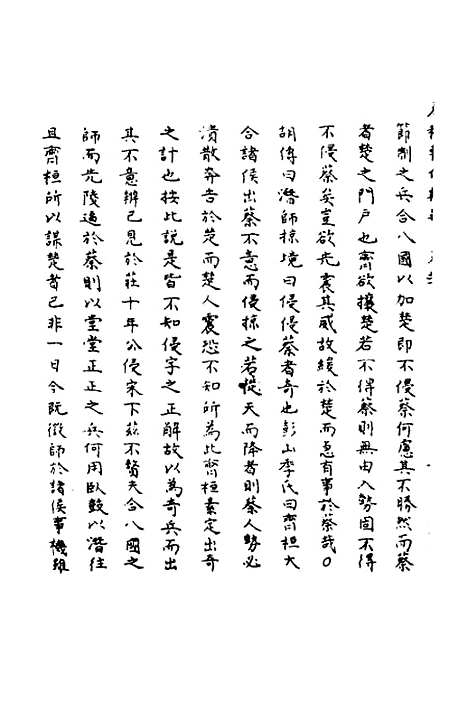 節制之兵合八國以加楚即不侵蔡何慮其不勝然而蔡
者楚之門户也齊欲攘楚若不得蔡則無由入勢固不得
不侵蔡矣豈欲先震其威故緩於楚而亟有事於蔡哉○
胡傳曰潛師掠境曰侵侵蔡者奇也彭山季氏曰齊桓大
合諸侯出蔡不意而侵掠之若從天而降者則蔡人勢必
潰散奔告於楚而楚人震恐不知所為此齊桓素定出奇
之計也按此說是皆不知侵字之正解故以為奇兵而出
其不意辨已見於莊十年公侵宋下茲不贅夫合八國之
師而先陵逼於蔡則以堂堂正正之兵何用臥鼓以潛往
且齊桓所以謀楚者已非一日今既徵師於諸侯事機雖